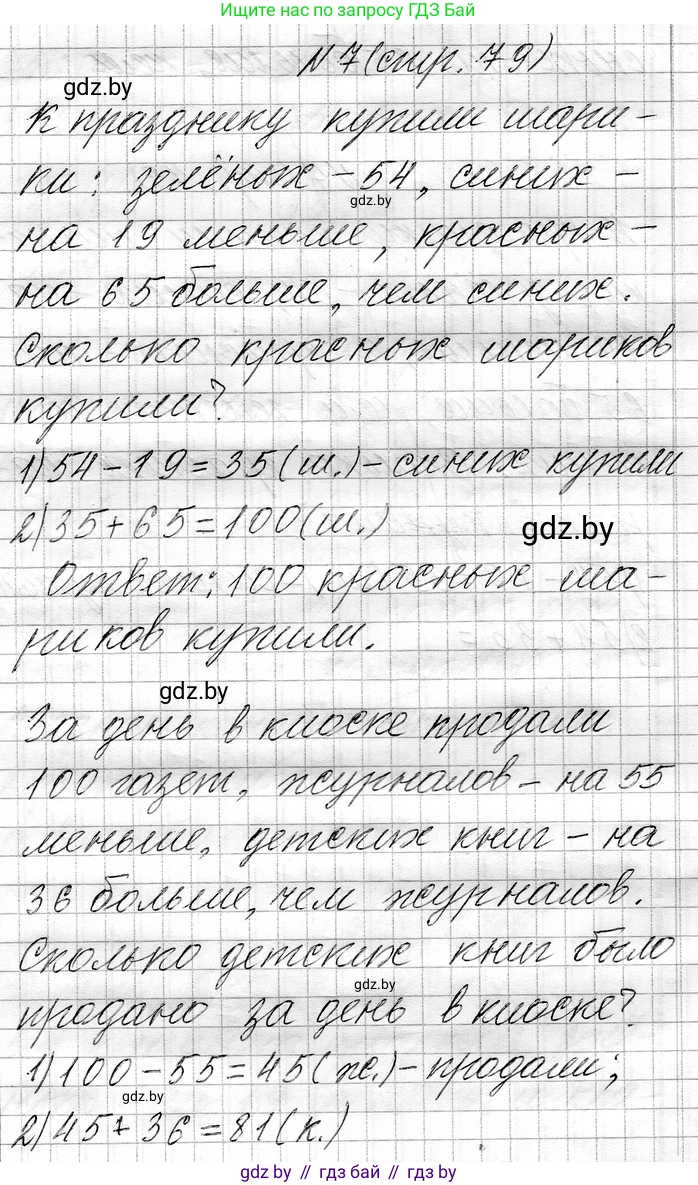 Ищите нас по запросу ГДЗ Бай
N 7 (стр. 79)
gdz.by
К празднику купили шари-
ки: зелёных - 54, синих -
gdz.by
на 19 меньше, красных -
на 65 больше, чем синих.
Сколько красных шариков
купили?
1) 54 - 19 = 35 (ш.) - синих купили
2) 35 + 65 = 100 (ш.)
gdz.by
Ответ: 100 красных ша-
риков купили.
gdz.by
За день в киоске продали
100 газет, журналов - на 55
меньше, детских книг - на
36 больше, чем журналов.
Сколько детских книг было
gdz.by
продано за день в киоске?
1) 100 - 55 = 45 (ж.) - продали;
gdz.by
2) 45 + 36 = 81 (к.)
gdz.by // гдз бай // gdz.by